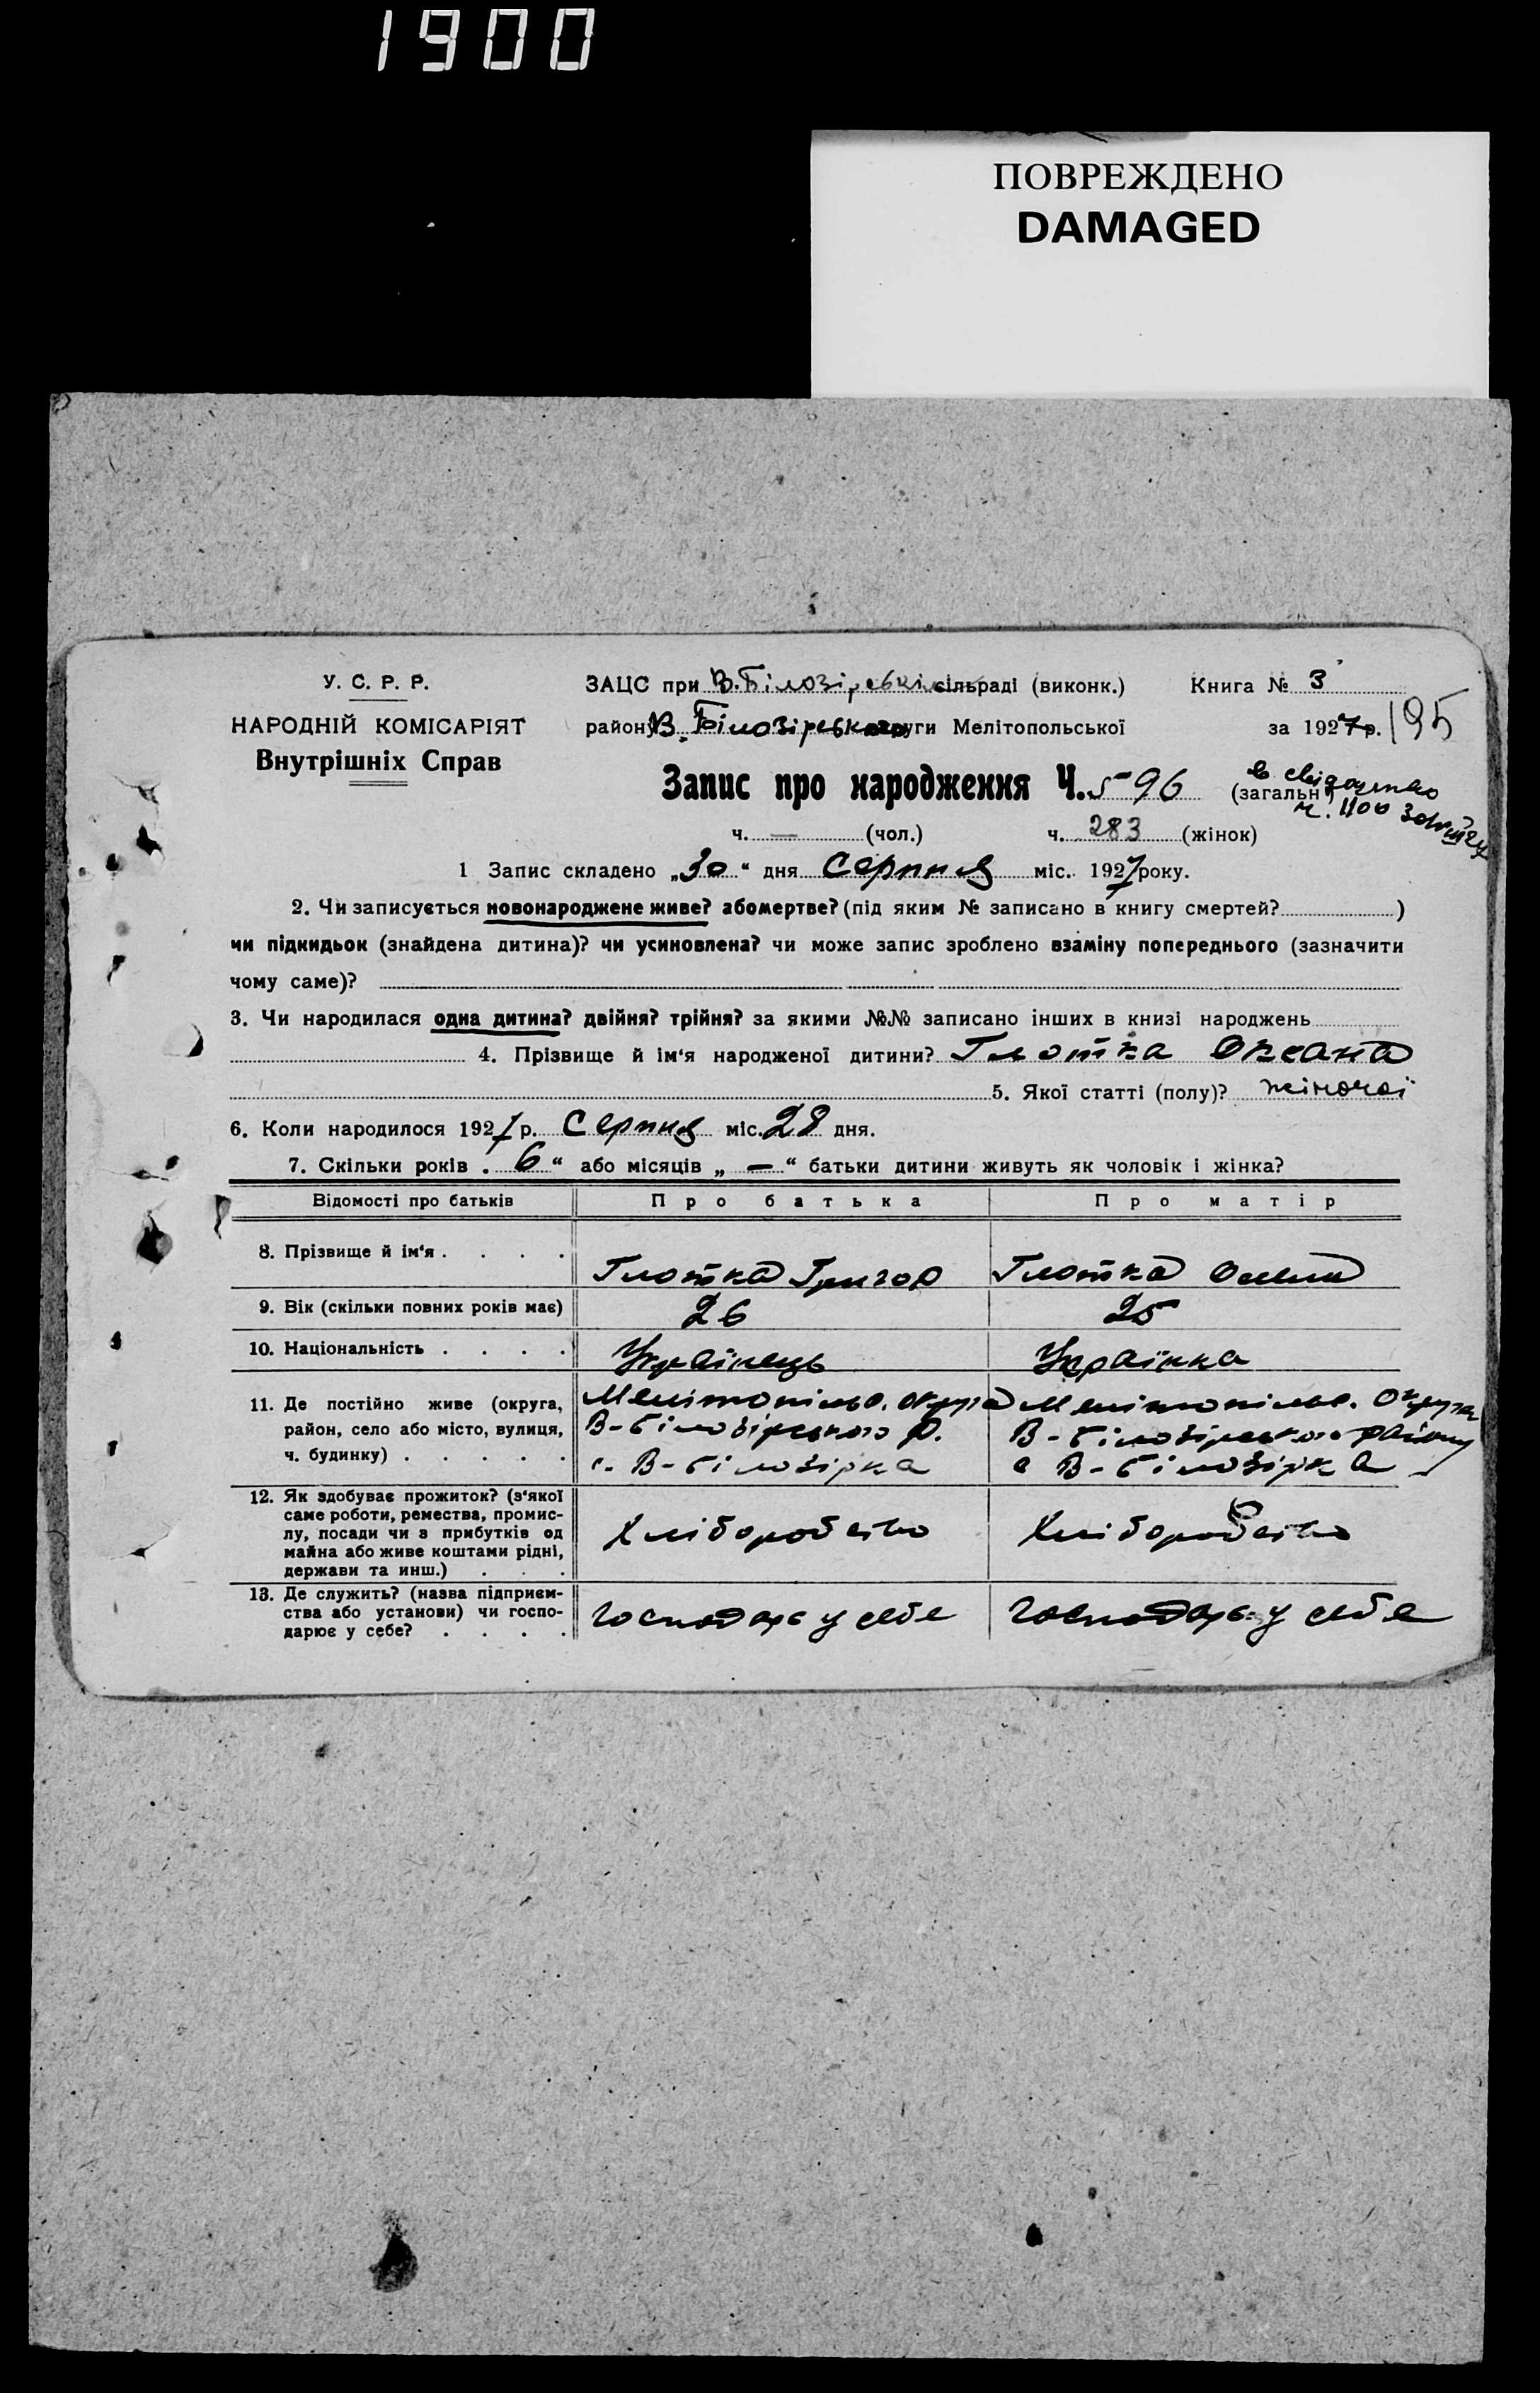 1900
ПОВРЕЖДЕНО
DAMAGED
У. С. Р. Р.
НАРОДНІЙ КОМІСАРІЯТ
Внутрішніх Справ
ЗАЦС при В. Білозірській сільраді (виконк.) Книга № 3
району В. Білозірського округи Мелітопольської за 1927 р. 195
Запис про народження Ч. 596 (загальн.)
в свідоцтво
ч. — (чол.) ч. 283 (жінок)
1 Запис складено „30“ дня Серпня міс. 1927 року.
2. Чи записується новонароджене живе? або мертве? (під яким № записано в книгу смертей? )
чи підкидьок (знайдена дитина)? чи усиновлена? чи може запис зроблено взаміну попереднього (зазначити
чому саме)?
3. Чи народилася одна дитина? двійня? трійня? за якими №№ записано інших в книзі народжень
4. Прізвище й ім‘я народженої дитини? Глотка Оксана
5. Якої статті (полу)? жіночої
6. Коли народилося 1927 р. Серпня міс. 28 дня.
7. Скільки років „6“ або місяців „—“ батьки дитини живуть як чоловік і жінка?
Відомості про батьків Про батька Про матір
8. Прізвище й ім‘я . . . . Глотка Григор Глотка
9. Вік (скільки повних років має) 26 25
10. Національність . . . . Українець Українка
11. Де постійно живе (округа, Мелітопільс. округа Мелітопільс. Округа
район, село або місто, вулиця, В-Білозірського р. В-Білозірського району
ч. будинку) . . . . . с. В-Білозірка с В-Білозірка
12. Як здобуває прожиток? (з‘якої
саме роботи, ремества, промис-
лу, посади чи з прибутків од Хліборобство Хліборобство
майна або живе коштами рідні,
держави та инш.) . . .
13. Де служить? (назва підприєм-
ства або установи) чи госпо- Господарє у себе Господарє у себе
дарює у себе? . . . .